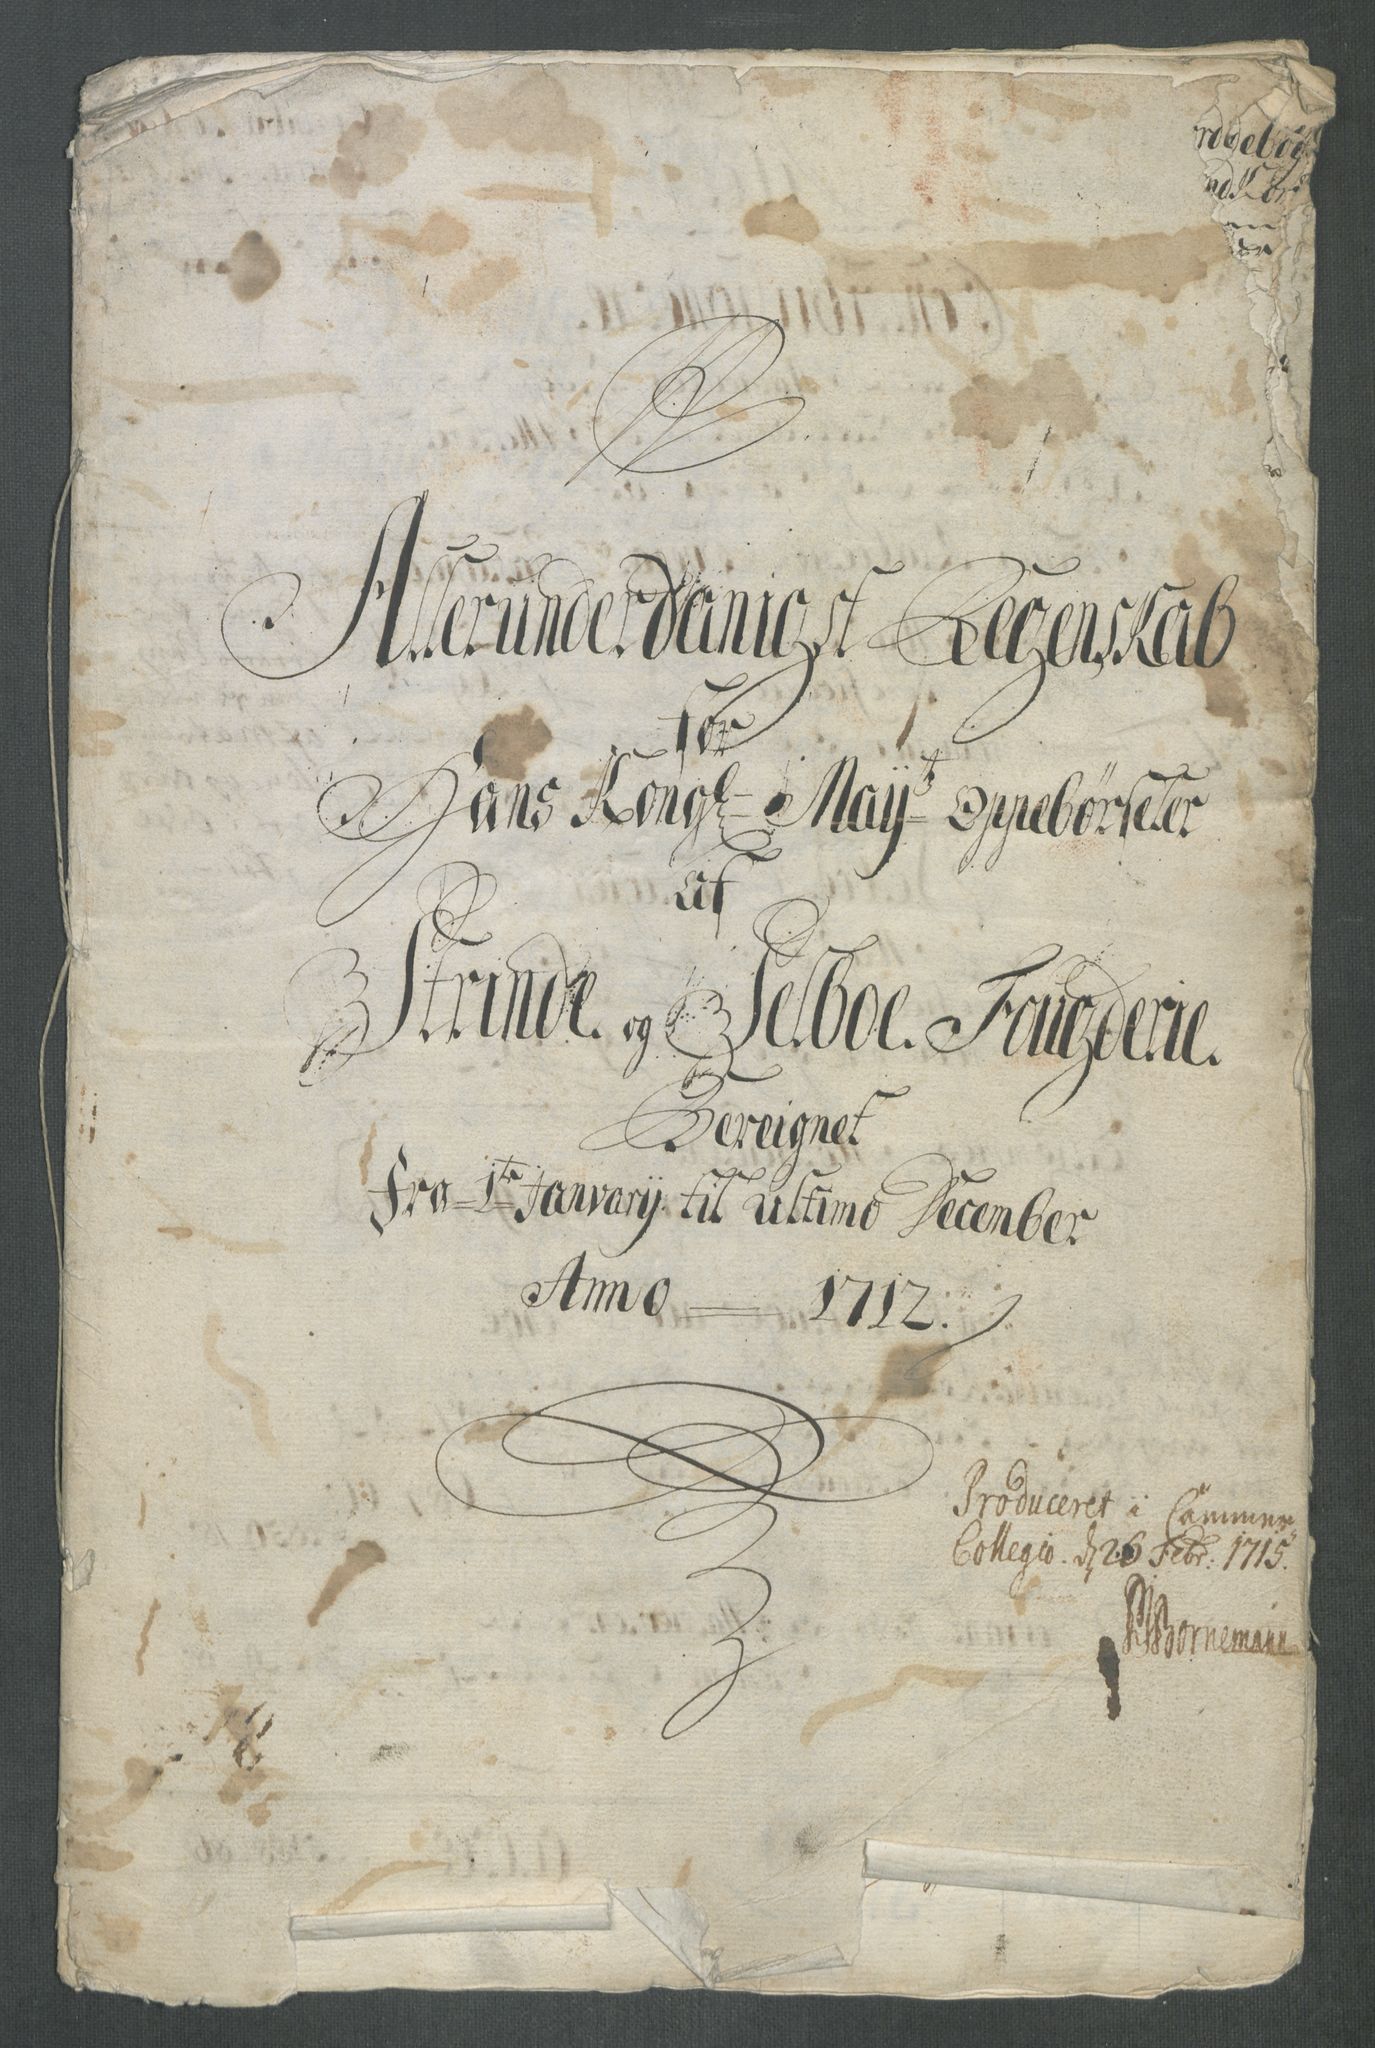 Allerunderdanigst Regenskab
for
Hans Kongl: Mayts Oppebørseler
af
Strinde og Selboe Fougderie.
Bereignet
Fra 1te Janvarij til ultimo December
Anno 1712.
Produceret i Cammer
Collegio. d 26 Febr: 1715.
Bornemann